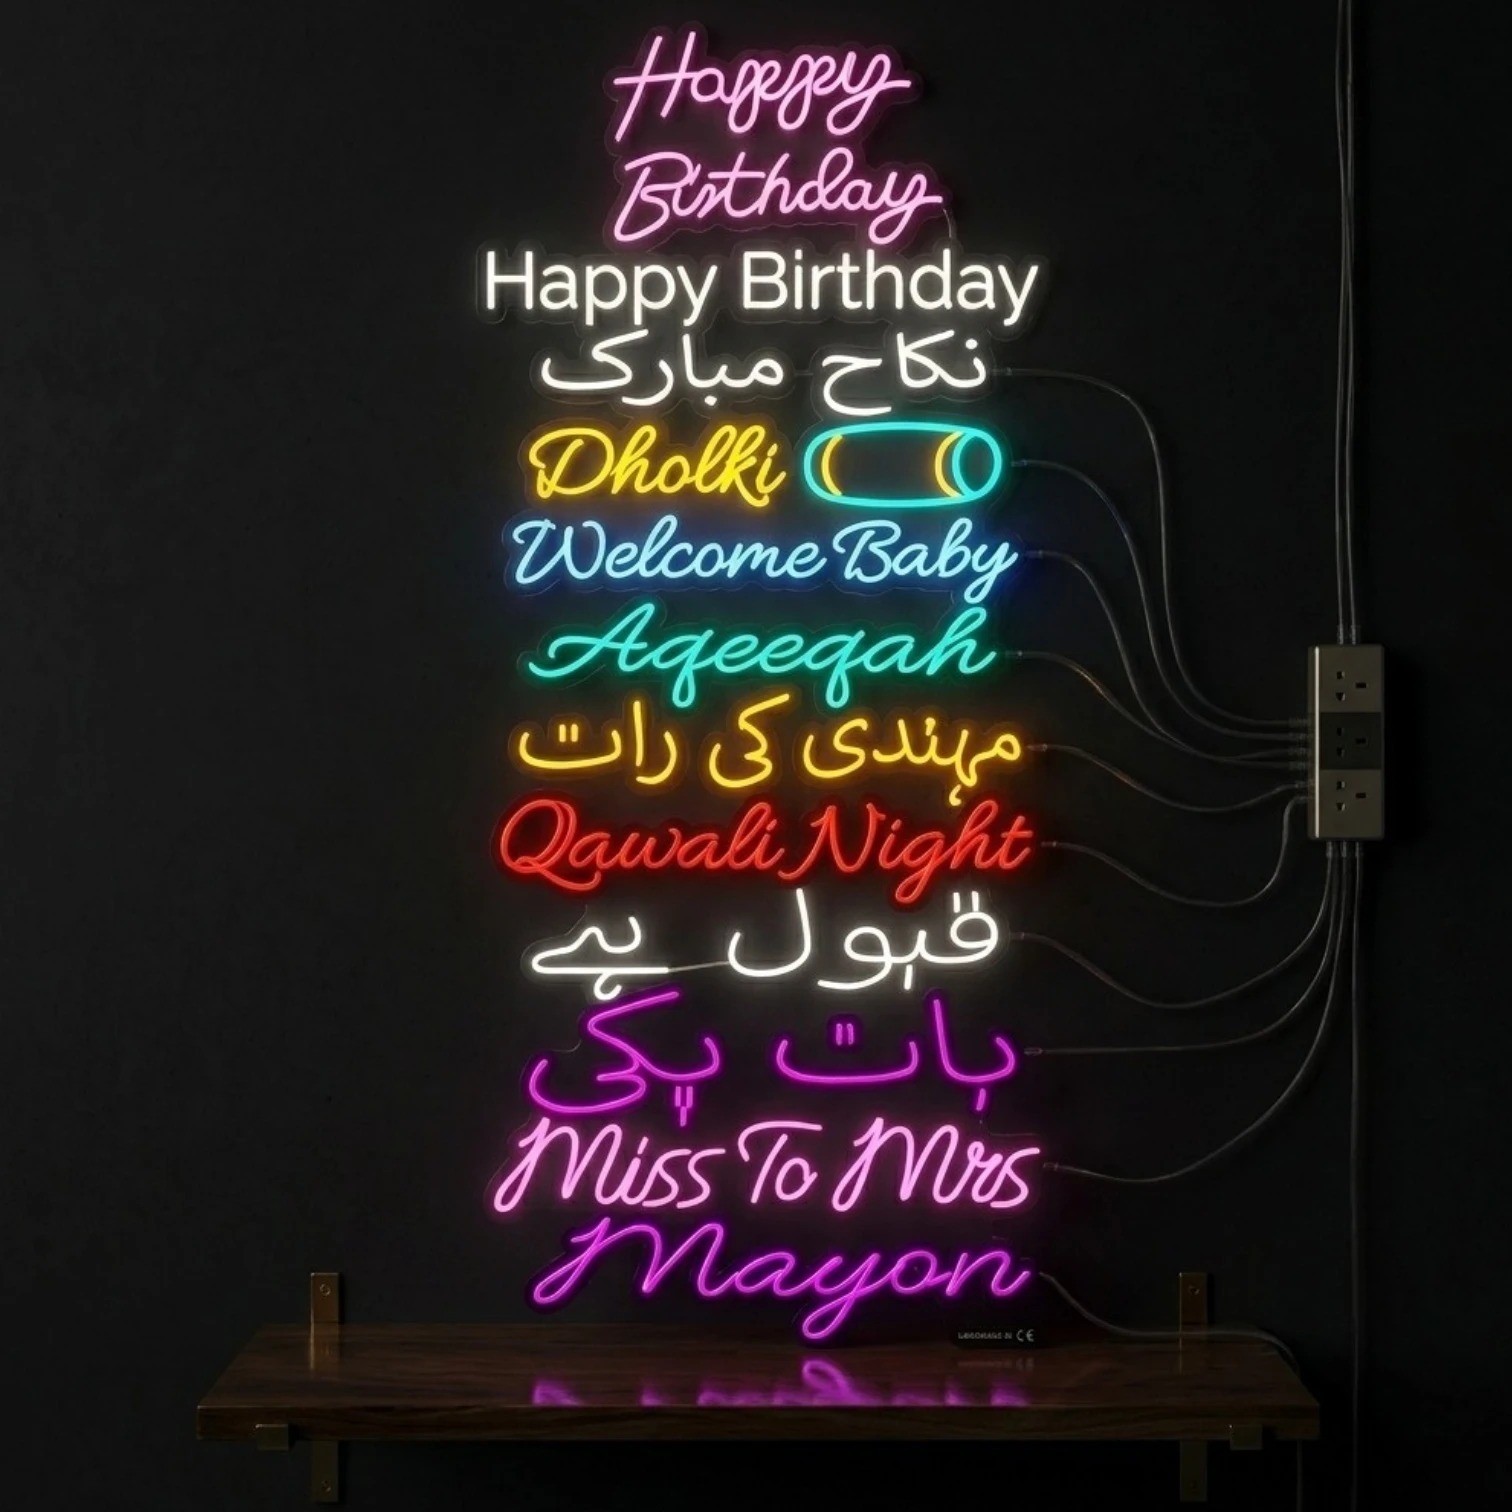 Happy
Birthday
Happy Birthday
نکاح مبارک
Dholki
Welcome Baby
Aqeeqah
مہندی کی رات
Qawali Night
قبول ہے
بات پکی
Miss To Mrs
Mayon
CE